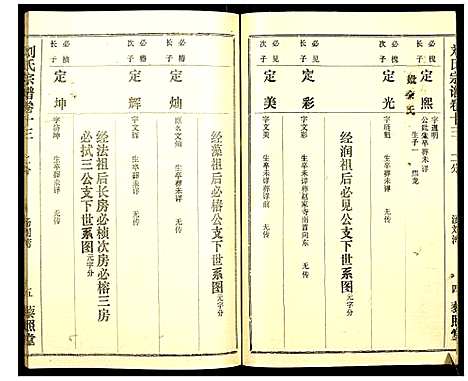 刘氏宗谱卷十三 二分
必槐
次子
定熙
字道明
公妣生卒葬未详
生子一 熙龙
殷余氏
必槐
长子
定光
字道魁
生卒葬未详
无传
经润祖后必见公支下世系图元字分
必见
次子
定彩
字文彩
无传
必见
长子
定美
字文美
生卒葬未详
无传
四 藜照堂
经藻祖后必椿公支下世系图元字分
必椿
长子
定灿
原名文灿
生卒葬未详
无传
必椿
次子
定辉
字文辉
生卒葬未详
无传
经法祖后长房必桢次房必榕三房
必拭三公支下世系图元字分
必桢
长子
定坤
生卒葬未详
无传
刘氏宗谱卷十三 二分
五 藜照堂